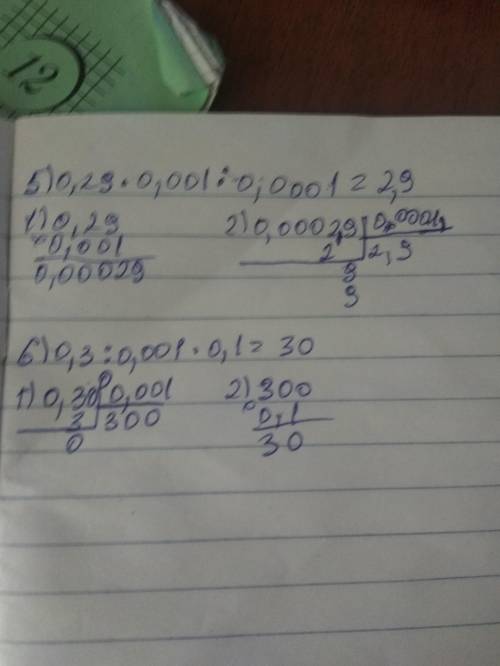 12
5) 0,29 · 0,001 : 0,0001 = 2,9
1) 0,29
× 0,001
0,00029
2) 0,00029 | 0,0001
2 | 2,9
9
9
6) 0,3 : 0,001 · 0,1 = 30
1) 0,300 | 0,001
3 | 300
0
2) 300
× 0,1
30